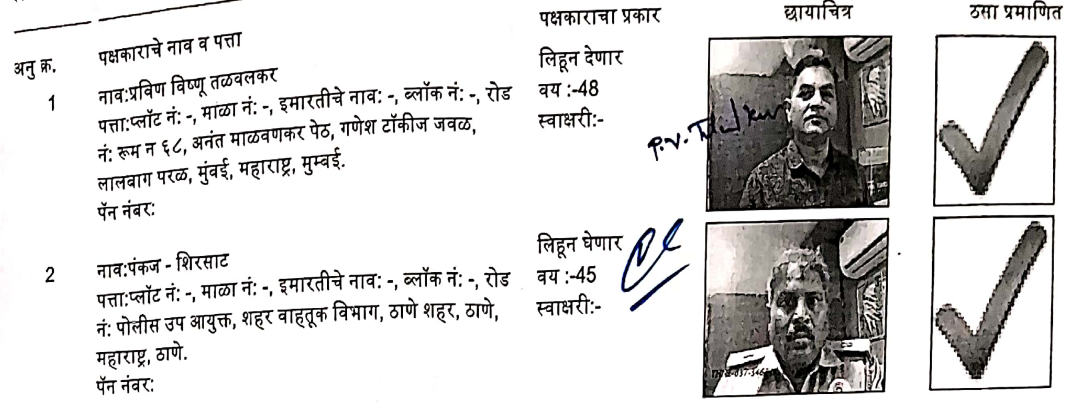 अनु क्र. पक्षकाराचे नाव व पत्ता पक्षकाराचा प्रकार छायाचित्र ठसा प्रमाणित
1 नाव:प्रविण विष्णू तळवलकर
पत्ता:प्लॉट नं: -, माळा नं: -, इमारतीचे नाव: -, ब्लॉक नं: -, रोड
नं: रूम न ६८, अनंत माळवणकर पेठ, गणेश टॉकीज जवळ,
लालबाग परळ, मुंबई, महाराष्ट्र, मुम्बई.
पॅन नंबर:
लिहून देणार
वय :-48
स्वाक्षरी:-
2 नाव:पंकज - शिरसाट
पत्ता:प्लॉट नं: -, माळा नं: -, इमारतीचे नाव: -, ब्लॉक नं: -, रोड
नं: पोलीस उप आयुक्त, शहर वाहतूक विभाग, ठाणे शहर, ठाणे,
महाराष्ट्र, ठाणे.
पॅन नंबर:
लिहून घेणार
वय :-45
स्वाक्षरी:-